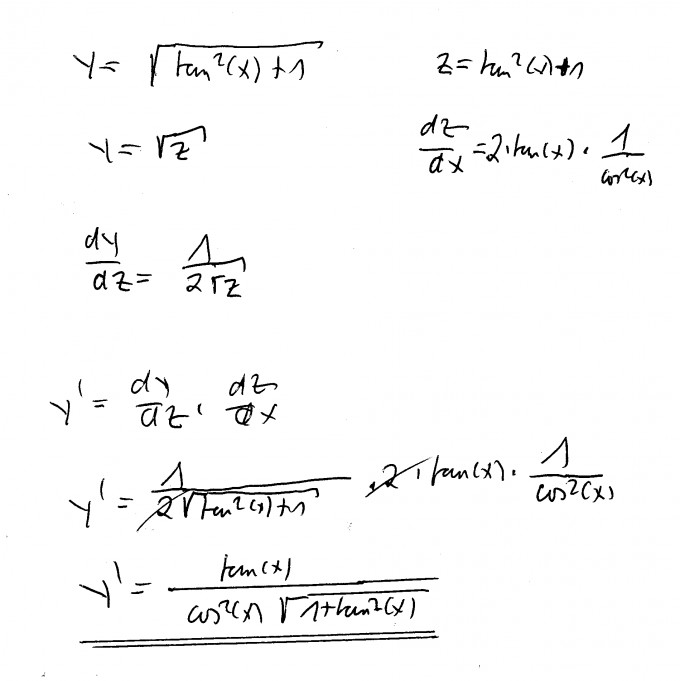 y = √(tan²(x) + 1) z = tan²(x) + 1
y = √z dz/dx = 2·tan(x) · 1/cos²(x)
dy/dz = 1/(2√z)
y' = dy/dz · dz/dx
y' = 1/(2√(tan²(x) + 1)) · 2 · tan(x) · 1/cos²(x)
y' = tan(x)/(cos²(x) √(1 + tan²(x)))